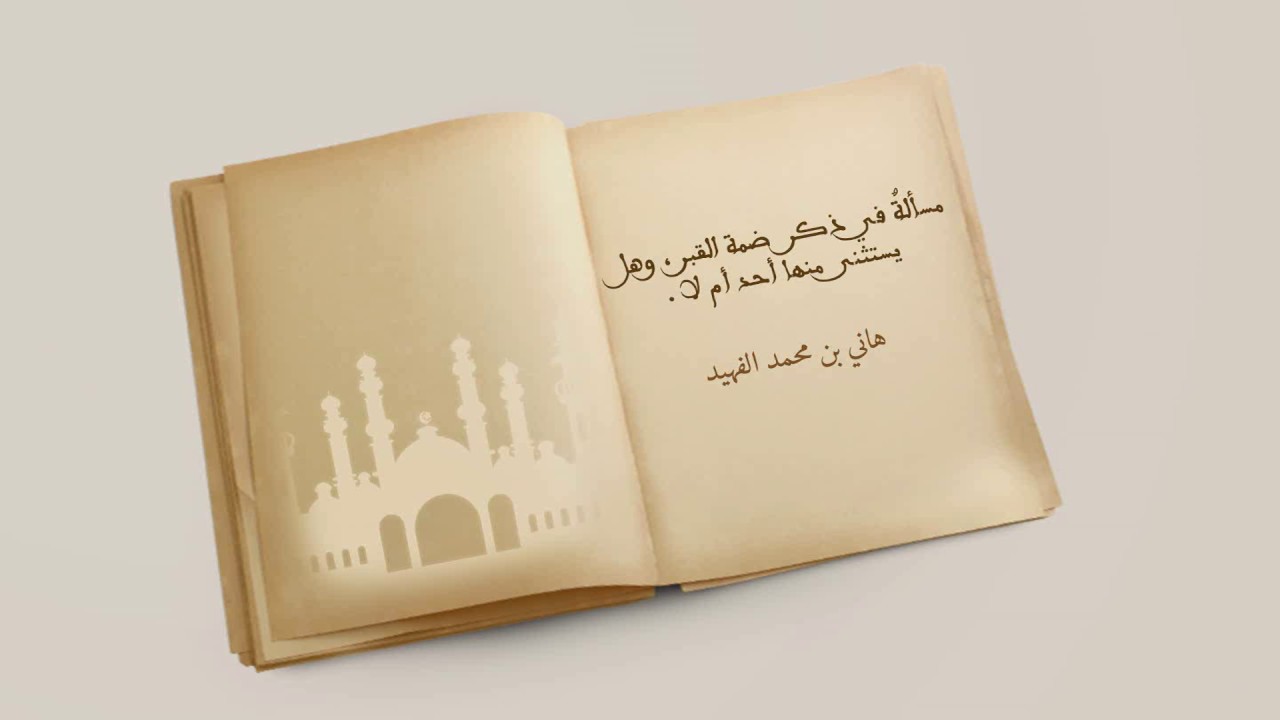 مسألةٌ في ذكر ضمة القبر، وهل
يستثنى منها أحد أم لا.
هاني بن محمد الفهيد